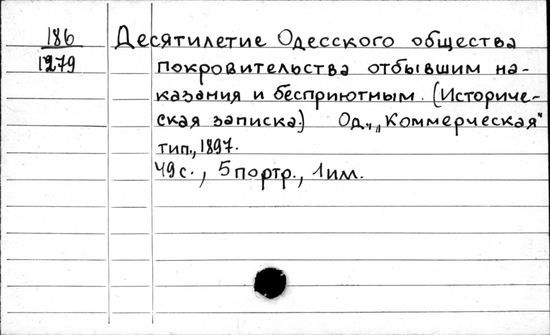 186 Десятилетие Одесского общества
1279 покровительства отбывшим на-
казания и бесприютным. (Историче-
ская записка.) Од., „Коммерческая"
тип., 1897.
49 с., 5 портр., 1 илл.